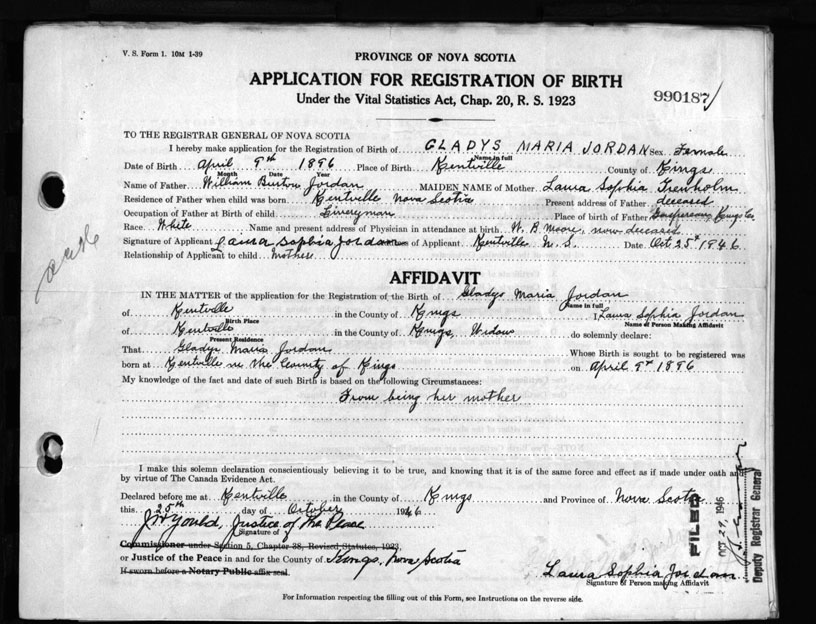 V. S. Form 1. 10M 1-39
PROVINCE OF NOVA SCOTIA
APPLICATION FOR REGISTRATION OF BIRTH
Under the Vital Statistics Act, Chap. 20, R. S. 1923
990187
TO THE REGISTRAR GENERAL OF NOVA SCOTIA
I hereby make application for the Registration of Birth of GLADYS MARIA JORDAN Sex Female
Name in full
Date of Birth April 9th 1896 Place of Birth Kentville County of Kings
Month Date Year
Name of Father William Burton Jordan MAIDEN NAME of Mother Laura Sophia Trenholm
Residence of Father when child was born Kentville Nova Scotia Present address of Father deceased
Occupation of Father at Birth of child Liveryman Place of birth of Father Gaspereau Kings Co.
Race White Name and present address of Physician in attendance at birth W. B. Moore, now deceased
Signature of Applicant Laura Sophia Jordan of Applicant Kentville N. S. Date Oct 25th 1946
Relationship of Applicant to child Mother
AFFIDAVIT
IN THE MATTER of the application for the Registration of the Birth of Gladys Maria Jordan
Name in full
of Kentville in the County of Kings I, Laura Sophia Jordan
Birth Place Name of Person Making Affidavit
of Kentville in the County of Kings, Widow do solemnly declare:
Present Residence
That Gladys Maria Jordan Whose Birth is sought to be registered was
born at Kentville in the County of Kings on April 9th 1896
My knowledge of the fact and date of such Birth is based on the following Circumstances:
From being her mother
I make this solemn declaration conscientiously believing it to be true, and knowing that it is of the same force and effect as if made under oath and
by virtue of The Canada Evidence Act.
Declared before me at Kentville in the County of Kings and Province of Nova Scotia
this 25th day of October 1946
J W Gould, Justice of The Peace
Signature of
Commissioner under Section 5, Chapter 38, Revised Statutes, 1923
or Justice of the Peace in and for the County of Kings, Nova Scotia
If sworn before a Notary Public affix seal.
Laura Sophia Jordan
Signature of Person making Affidavit
For Information respecting the filling out of this Form, see Instructions on the reverse side.
FILED
OCT 29, 1946
Deputy Registrar General